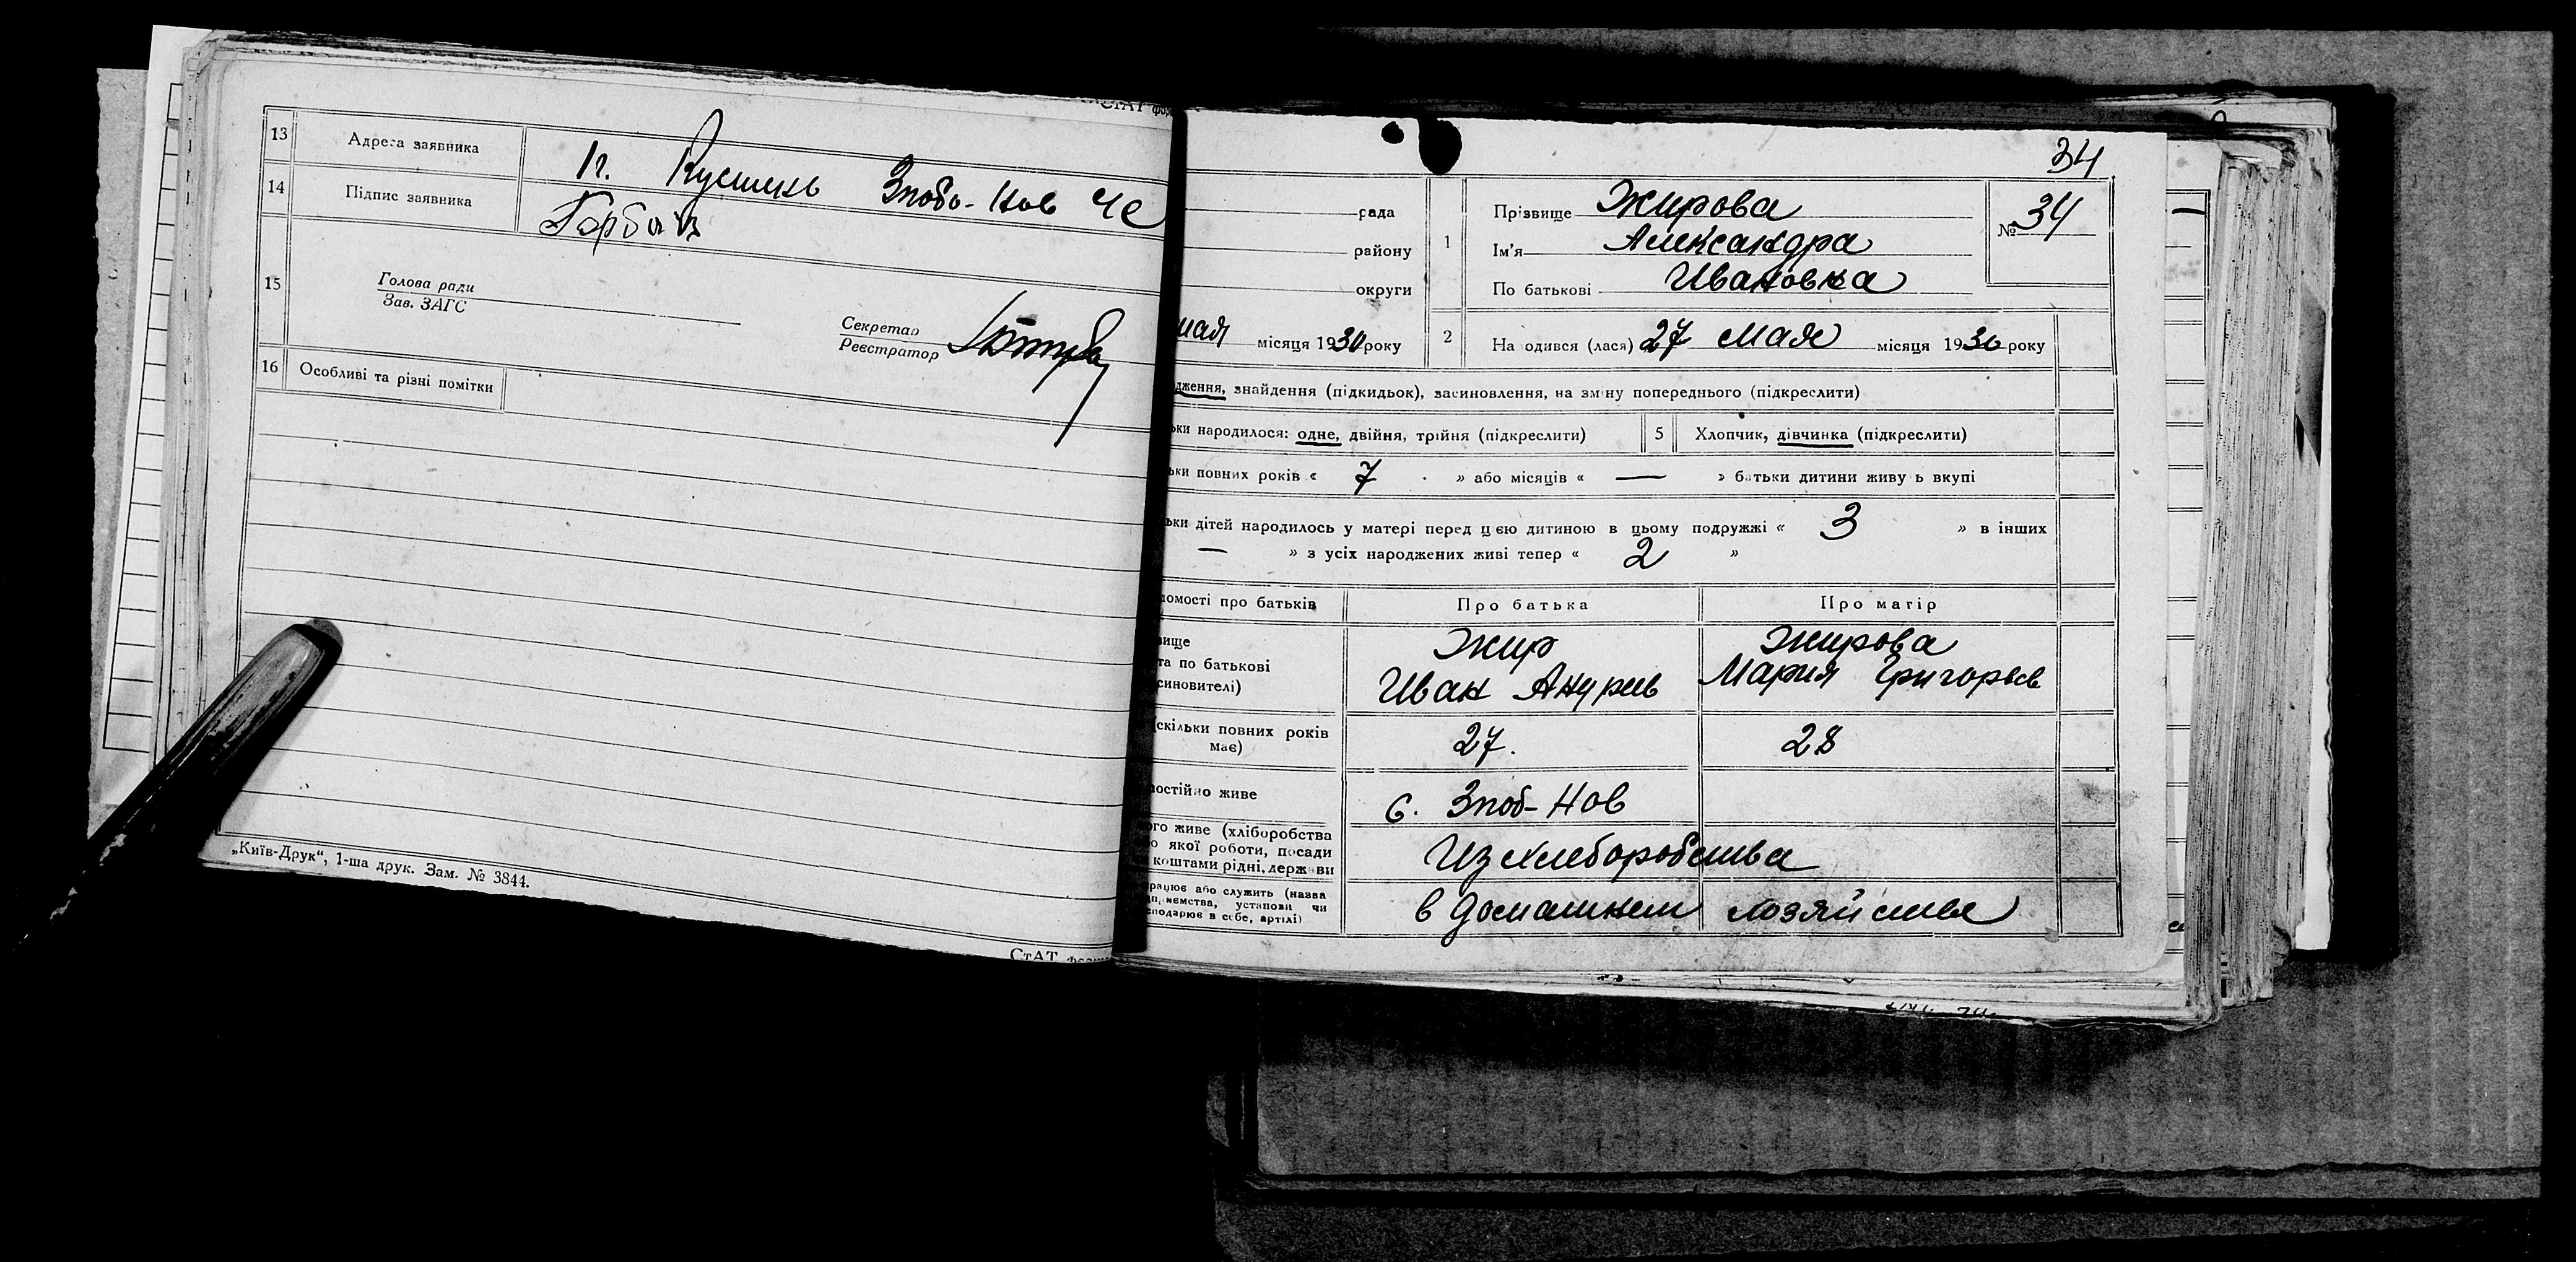 13 Адреса заявника П. Кустинь Зноб-Нов че
14 Підпис заявника Горбач
15 Голова ради
Зав. ЗАГС
Секретар
Реєстратор
16 Особливі та різні помітки
„Київ-Друк“, 1-ша друк. Зам. № 3844.
СтАТ
34
рада
району
округи
мая місяця 1930 року
1 Прізвище Жирова
Ім'я Александра
По батькові Ивановка
№ 34
2 На одився (лася) 27 мая місяця 1930 року
дження, знайдення (підкидьок), засиновлення, на зміну попереднього (підкреслити)
ьки народилося: одне, двійня, трійня (підкреслити) 5 Хлопчик, дівчинка (підкреслити)
ьки повних років « 7 » або місяців « — » батьки дитини живу ь вкупі
ьки дітей народилось у матері перед цією дитиною в цьому подружжі « 3 » в інших
— » з усіх народжених живі тепер « 2 »
домості про батьків Про батька Про матір
вище
та по батькові
синовителі)
Жир
Иван Андрев
Жирова
Мария Григорьев
(скільки повних років
має)
27. 28
постійно живе с. Зноб-Нов
ого живе (хліборобства
о якої роботи, посади
коштами рідні, держави
Из хлеборобства
рацює або служить (назва
приємства, установи чи
сподарює в себе, артілі)
в домашнем хозяйстве